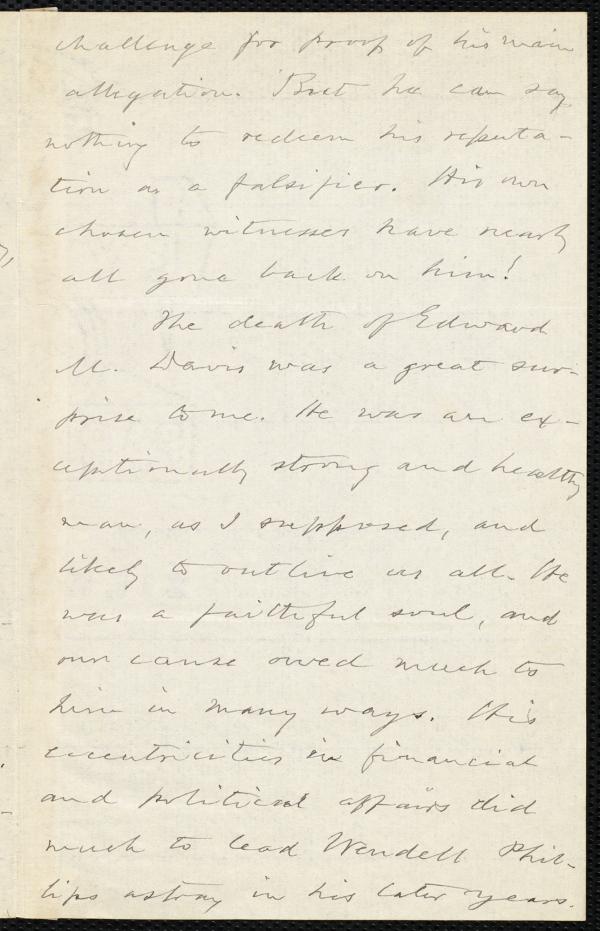 challenge for proof of his main
allegation. But he can say
nothing to redeem his reputa-
tion as a falsifier. His own
chosen witnesses have nearly
all gone back on him!
The death of Edward
M. Davis was a great sur-
prise to me. He was an ex-
ceptionally strong and healthy
man, as I supposed, and
likely to outlive us all. He
was a faithful soul, and
our cause owed much to
him in many ways. His
eccentricities in financial
and political affairs did
much to lead Wendell Phil-
lips astray in his later years.